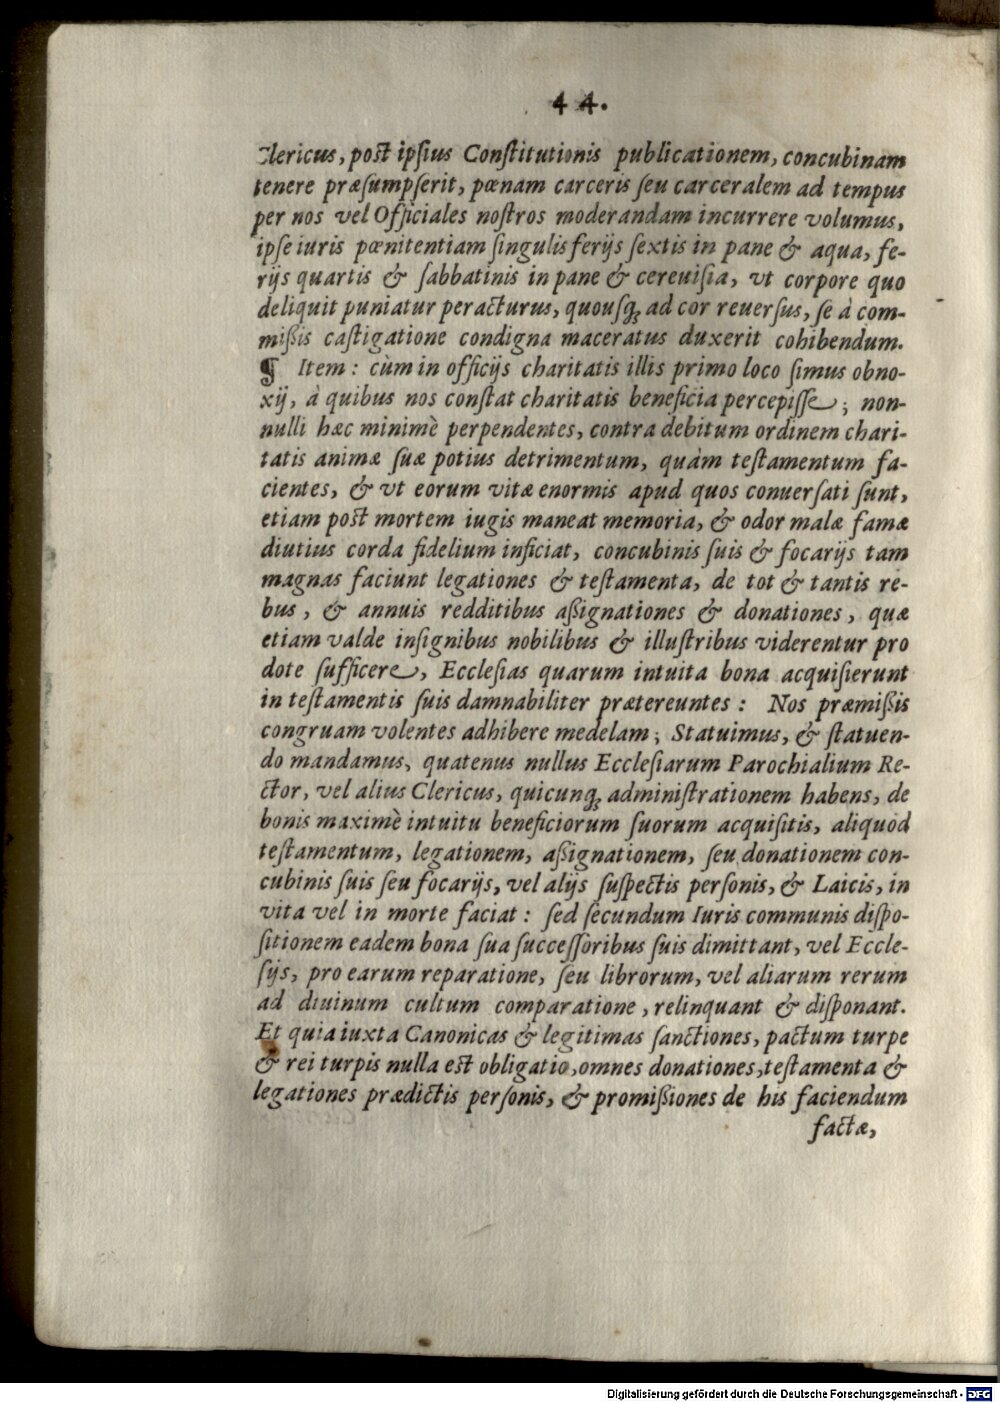 44.
Clericus, poſt ipſius Conſtitutionis publicationem, concubinam
tenere præſumpſerit, pœnam carceris ſeu carceralem ad tempus
per nos vel Officiales noſtros moderandam incurrere volumus,
ipſe iuris pœnitentiam ſingulis ferijs ſextis in pane & aqua, fe-
rijs quartis & ſabbatinis in pane & cereuiſia, vt corpore quo
deliquit puniatur peracturus, quouſq; ad cor reuerſus, ſe à com-
mißis caſtigatione condigna maceratus duxerit cohibendum.
¶ Item: cùm in officijs charitatis illis primo loco ſimus obno-
xij, à quibus nos conſtat charitatis beneficia percepiſſe; non-
nulli hæc minimè perpendentes, contra debitum ordinem chari-
tatis animæ ſuæ potius detrimentum, quàm teſtamentum fa-
cientes, & vt eorum vitæ enormis apud quos conuerſati ſunt,
etiam poſt mortem iugis maneat memoria, & odor malæ famæ
diutius corda fidelium inficiat, concubinis ſuis & focarijs tam
magnas faciunt legationes & teſtamenta, de tot & tantis re-
bus, & annuis redditibus aßignationes & donationes, quæ
etiam valde inſignibus nobilibus & illuſtribus viderentur pro
dote ſufficere, Eccleſias quarum intuita bona acquiſierunt
in teſtamentis ſuis damnabiliter prætereuntes: Nos præmißis
congruam volentes adhibere medelam; Statuimus, & ſtatuen-
do mandamus, quatenus nullus Eccleſiarum Parochialium Re-
ctor, vel alius Clericus, quicunq; adminiſtrationem habens, de
bonis maximè intuitu beneficiorum ſuorum acquiſitis, aliquod
teſtamentum, legationem, aßignationem, ſeu donationem con-
cubinis ſuis ſeu focarijs, vel alijs ſuſpectis perſonis, & Laicis, in
vita vel in morte faciat: ſed ſecundum Iuris communis diſpo-
ſitionem eadem bona ſua ſucceſſoribus ſuis dimittant, vel Eccle-
ſijs, pro earum reparatione, ſeu librorum, vel aliarum rerum
ad diuinum cultum comparatione, relinquant & diſponant.
Et quia iuxta Canonicas & legitimas ſanctiones, pactum turpe
& rei turpis nulla eſt obligatio, omnes donationes, teſtamenta &
legationes prædictis perſonis, & promißiones de his faciendum
factæ,
Digitalisierung gefördert durch die Deutsche Forschungsgemeinschaft - DFG